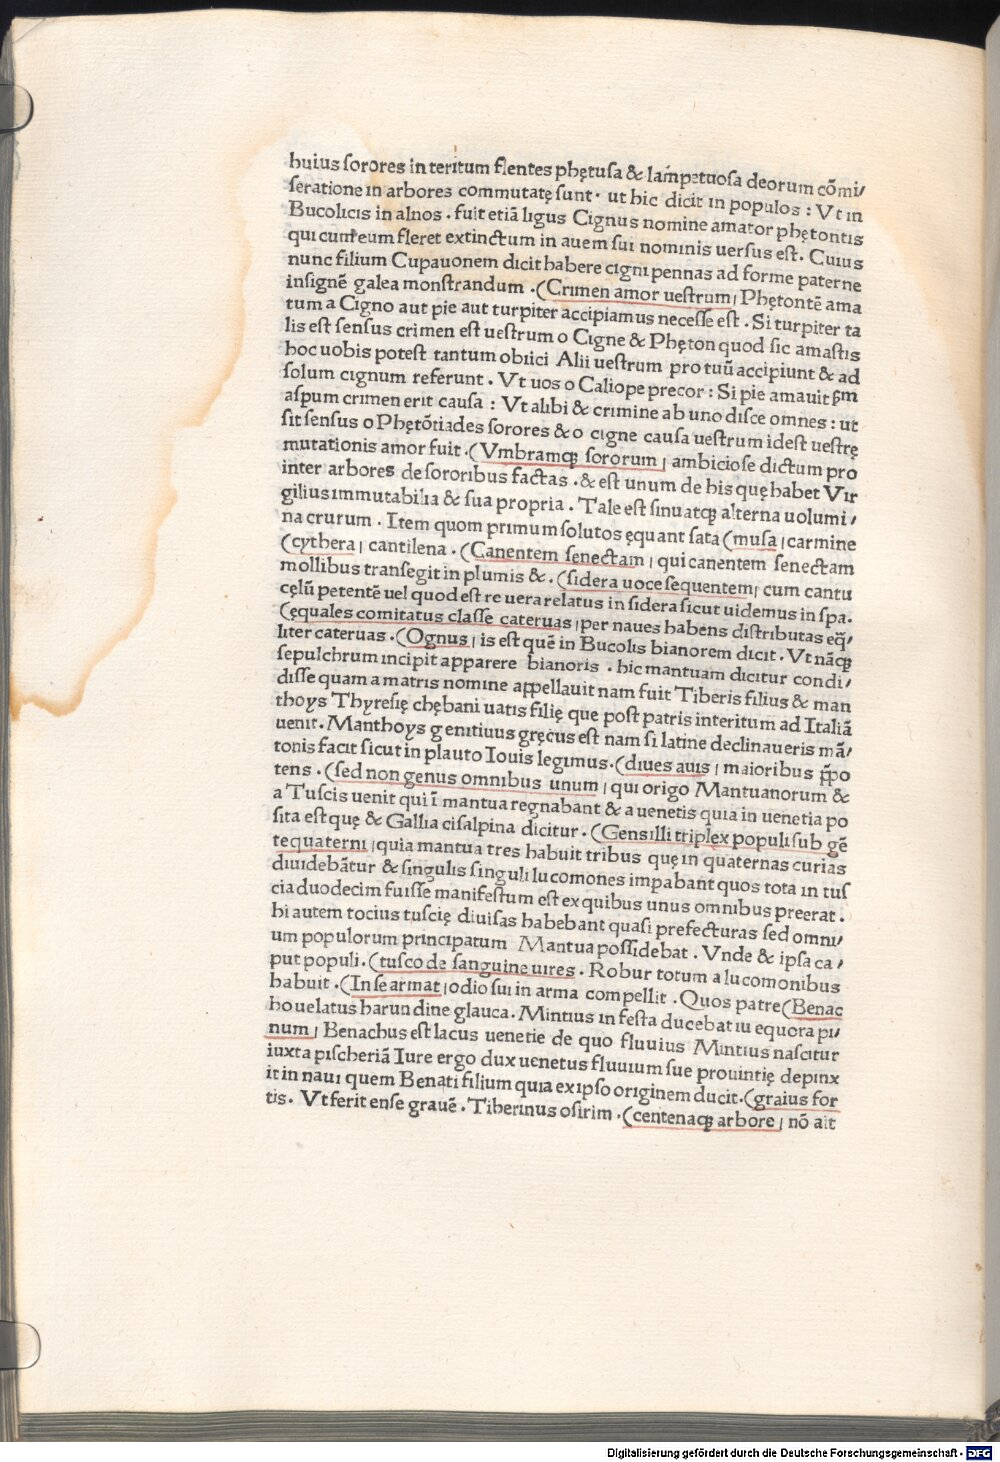 huius sorores in teritum flentes phętusa & lampetuosa deorum cōmi/
seratione in arbores commutatę sunt · ut hic dicit in populos : Vt in
Bucolicis in alnos . fuit etiā ligus Cignus nomine amator phętontis
qui cum eum fleret extinctum in auem sui nominis uersus est. Cuius
nunc filium Cupauonem dicit habere cigni pennas ad forme paterne
insignē galea monstrandum . (Crimen amor uestrum| Phętontē ama
tum a Cigno aut pie aut turpiter accipiamus necesse est . Si turpiter ta
lis est sensus crimen est uestrum o Cigne & Phęton quod sic amastis
hoc uobis potest tantum obiici Alii uestrum pro tuū accipiunt & ad
solum cignum referunt . Vt uos o Caliope precor : Si pie amauit ꝑm
aspum crimen erit causa : Vt alibi & crimine ab uno disce omnes : ut
sit sensus o Phętōtiades sorores & o cigne causa uestrum idest uestrę
mutationis amor fuit . (Vmbramqꝫ sororum| ambiciose dictum pro
inter arbores de sororibus factas . & est unum de his quę habet Vir
gilius immutabilia & sua propria . Tale est sinuatqꝫ alterna uolumi/
na crurum . Item quom primum solutos ęquant sata (musa| carmine
(cythera| cantilena . (Canentem senectam| qui canentem senectam
mollibus transegit in plumis & . (sidera uoce sequentem| cum cantu
cęlū petentē uel quod est re uera relatus in sidera sicut uidemus in spa.
(ęquales comitatus classe cateruas| per naues habens distributas eq̄/
liter cateruas . (Ognus| is est quē in Bucolis bianorem dicit . Vt nāqꝫ
sepulchrum incipit apparere bianoris . hic mantuam dicitur condi/
disse quam a matris nomine appellauit nam fuit Tiberis filius & man
thoys Thyresię chębani uatis filię que post patris interitum ad Italiā
uenit . Manthoys genitiuus gręcus est nam si latine declinaueris mā/
tonis facit sicut in plauto Iouis legimus . (diues auis| maioribus p̄po
tens . (sed non genus omnibus unum| qui origo Mantuanorum &
a Tuscis uenit qui ī mantua regnabant & a uenetis quia in uenetia po
sita est quę & Gallia cisalpina dicitur . (Gens illi triplex populi sub gē
te quaterni| quia mantua tres habuit tribus quę in quaternas curias
diuidebātur & singulis singuli lucomones impabant quos tota in tus
cia duodecim fuisse manifestum est ex quibus unus omnibus preerat .
hi autem tocius tuscię diuisas habebant quasi prefecturas sed omni/
um populorum principatum Mantua possidebat . Vnde & ipsa ca/
put populi . (tusco de sanguine uires . Robur totum a lucomonibus
habuit . (In se armat| odio sui in arma compellit . Quos patre (Benac
ho uelatus harundine glauca . Mintius in festa ducebat iu equora pi/
num| Benachus est lacus uenetie de quo fluuius Mintius nascitur
iuxta pischeriā Iure ergo dux uenetus fluuium sue prouintię depinx
it in naui quem Benati filium quia ex ipso originem ducit . (graius for
tis . Vt ferit ense grauē . Tiberinus osirim . (centenaqꝫ arbore| nō ait
Digitalisierung gefördert durch die Deutsche Forschungsgemeinschaft · DFG